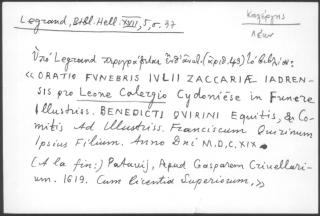 Legrand, Bibl. Hell. XVII, 5, σ. 37
Καλέργης
Λέων
Ὑπὸ Legrand περιγράφεται ἐνθ' ἀνωτ. (ἀριθ. 49) τὸ βιβλίον:
«ORATIO FVNEBRIS IVLII ZACCARIÆ IADREN-
SIS pro Leone Calergio Cydoniēse in Funere
Illustriss. BENEDICTI QVIRINI Equitis, & Co-
mitis Ad Illustriss. Franciscum Quirinum
Ipsius Filium. Anno Dni M.D.C.XIX.
(A la fin:) Patavij, Apud Gasparem Crivellari-
um. 1619. Cum licentia Superiorum,»